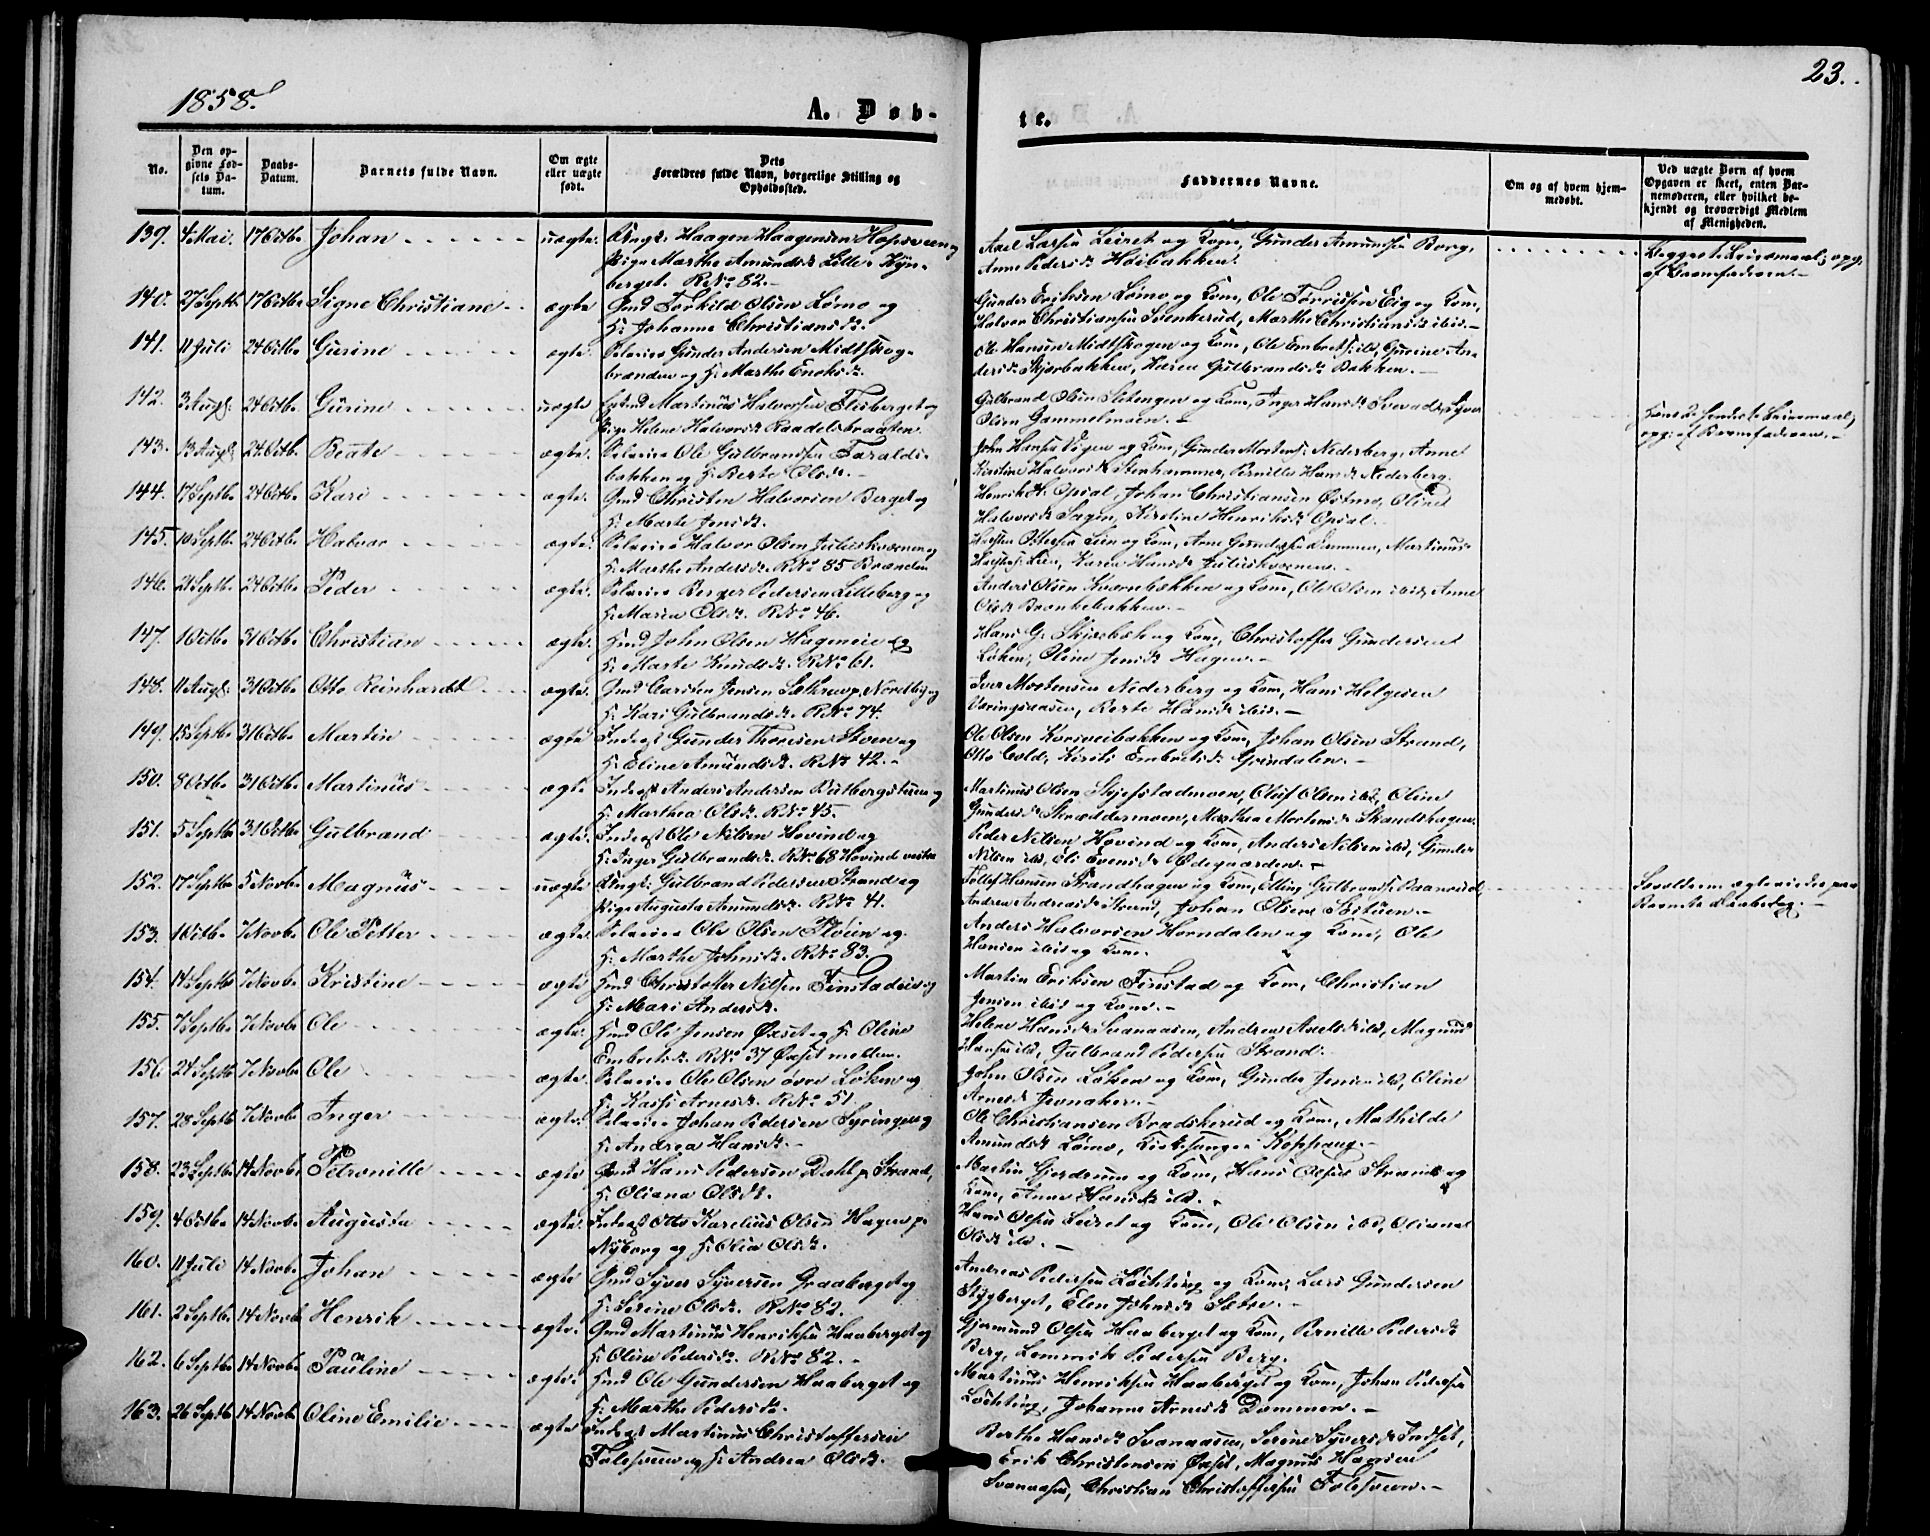 1858.
A. Døb-
te.
23.
No.
Den op-
givne Fød-
sels Da-
tum.
Daabs-
Datum.
Barnets fulde Navn.
Om ægte
eller uægte
født.
Dets
Forældres fulde Navn, borgerlige Stilling og
Opholdssted.
Faddernes Navne.
Om og af hvem hjem-
medøbt.
Ved uægte Børn af hvem
Opgaven er skeet, enten Bar-
nemoderen, eller hvilket be-
kjendt og troværdigt Medlem
af Menigheden.
139. 4 Mai. 17 Octbr Johan uægte. Ungk. Haagen Haagensen
Pige Marthe Amundsd. Lille
berget. RNo 82.
Axel Larsen Leiret og Kone, Gunder Amundsen Borg,
Anne Pedersd. Høibakken.
af Barnefaderen.
140. 27 Septbr 17 Octbr Signe Christiane ægte Gmd Torkild Olsen Lømo og
H. Johanne Christiansd.
Gunder Eriksen Lømo og Kone, Ole Torrissen Eig og Kone,
Halvor Christiansen Svenkerud, Marthe Christiansd. ibid.
141. 11 Juli 24 Octbr Gurine ægte. Selveier Gunder Andersen Midtskog-
brænden og H. Marthe Enoksd.
Ole Hansen Midtskogen og Kone, Ole Embrets. ibd, Gurine An-
dersd. Skjærbakken, Karen Gulbrandsd. Bakken.
142. 3 Aug. 24 Octbr Gurine uægte Martinus Halvorsen Flisberget og
Pige Helene Halvorsd. Raadelsbraaten.
Gulbrand Olsen Stetengen og Kone, Inger Hansd. Syver
Olsen Gammelmoen.
opg. af Barnefaderen.
143. 13 Aug. 24 Octbr Beate ægte. Selveier Ole Gulbrandsen Taralds-
bakken og H. Berte Olsd.
John Hansen Vigen og Kone, Gunder Mortens. Nederberg, Anne
Kirstine Halvorsd. Stenhammer, Pernille Hansd. Nederberg.
144. 17 Septbr 24 Octbr Kari ægte. Gmd Christen Halvorsen Berget og
H. Marte Jensd.
Henrik H. Opsal, Johan Christiansen Østmo, Oline
Halvorsd. Sagen, Kirstine Henriksd. Opsal.
145. 10 Septbr 24 Octbr Halvor ægte. Selveier Halvor Olsen Juliuskværnen og
H. Marthe Andersd. RNo 85 Brænden
Lien og Kone, Arne Gundersen Dammen, Martinus
Lien, Karen Hansd. Juliuskværnen.
146. 21 Septbr 24 Octbr Peder ægte. Selveier Berger Pedersen Lilleberg og
H. Maria Olsd. RNo 46.
Anders Olsen Kværnbækken og Kone, Ole Olsen ibid, Anne
Olsd. Brænkebakken.
147. 1 Octbr 31 Octbr Christian ægte. Gmd John Olsen Hageneie og
H. Marte Knudsd. RNo 61.
Hans G. Skjærbæk og Kone, Christoffer Gundersen
Løken, Oline Jensd. Hagen.
148. 11 Aug. 31 Octbr Otto Reinhardt ægte. Gmd Carsten Jensen Sætre p. Nordby og
H. Kari Gulbrandsd. RNo 74.
Iver Mortensen Nederberg og Kone, Hans Helgesen
Væringsaasen, Berte Hansd. ibid.
149. 15 Septbr 31 Octbr Martin ægte Inderst Gunder Thoresen Støen og
H. Eline Amundsd. RNo 42.
Ole Olsen Korsveibakken og Kone, Johan Olsen Strand,
Otto Cold, Kirsti Embretsd. Grindalen.
150. 8 Octbr 31 Octbr Martinus ægte. Inderst Anders Andersen og
H. Marthea Olsd. RNo 45.
Martinus Olsen Skjefstadmoen, Oluf Olsen ibd, Oline
Gundersd. Skræddermoen, Marthea Mortensd. Strandhagen.
151. 5 Septbr 31 Octbr Gulbrand ægte. Inderst Ole Nilsen Hovind og
H. Inger Gulbrandsd. RNo 68 Hovind vestre
Peder Nilsen Hovind og Kone, Anders Nilsen ibd, Gunder
Nilsen ibd, Eli Evensd. Ødegaarden.
152. 17 Septbr 5 Novbr Magnus uægte Ungk. Gulbrand Pedersen Strand og
Pige Augusta Amundsd. RNo 41.
Tollef Hansen Strandhagen og Kone, Elling Gulbrands. Baanrud,
Andrea Andreasd. Strand, Johan Olsen Sørstuen.
Forældrene ægteviedes paa
Barnets Daabsdag.
153. 1 Octbr 7 Novbr Ole Petter ægte. Selveier Ole Olsen Fløien og
H. Marthe Johnsd. RNo 83.
Anders Halvorsen Horndalen og Kone, Ole
Hansen ibid og Kone.
154. 14 Septbr 7 Novbr Kristine ægte Gmd Christoffer Nilsen Finstadeie og
H. Mari Andersd.
Martin Eriksen Finstad og Kone, Christian
Jensen ibid og Kone.
155. 7 Septbr 7 Novbr Ole ægte. Gmd Ole Jensen Øxset og H. Oline
Embretsd. RNo 37 Øxset mellem.
Helene Hansd. Svanaasen, Andrea Axelsd. ibd, Magnus
Hansen ibd, Gulbrand Pedersen Strand.
156 24 Septbr 7 Novbr Ole ægte. Selveier Ole Olsen øvre Løken og
H. Kassi Arnesd. RNo 51.
John Olsen Løken og Kone, Gunder Jensen ibd, Oline
Arnesd. Jevnaker.
157. 28 Septbr 7 Novbr Inger ægte. Selveier Johan Pedersen Syringen og
H. Andrea Hansd.
Ole Christiansen Bradskerud og Kone, Mathilde
Amundsd. Lømo, Kirkesanger Koppang.
158. 23 Septbr 14 Novbr Petronille ægte Gmd Hans Pedersen Dahl p. Strand,
H. Oliana Olsd.
Martin Gjerdrum og Kone, Hans Olsen Strand og
Kone, Anne Hansd. ibd.
159. 4 Octbr 14 Novbr Augusta ægte. Inderst Otto Karelius Olsen Hagen p.
Nyborg og H. Olia Olsd.
Hans Olsen Leiret og Kone, Ole Olsen ibd, Oliana
Olsd. ibd.
160. 11 Juli 14 Novbr Johan ægte Gmd Syver Syversen Graaberget og
H. Serine Olsd. RNo 82.
Andreas Pedersen Løchting og Kone, Lars Gundersen
Stygberget, Elen Johnsd. Sætre.
161. 2 Septbr 14 Novbr Henrik ægte. Gmd Martinus Henriksen Haaberget og
H. Oline Pedersd. RNo 82.
Gjermund Olsen Haaberget og Kone, Pernille Pedersd.
Berg, Lemmik Pedersen Berg.
162. 6 Septbr 14 Novbr Pauline ægte. Gmd Ole Gundersen Haaberget og
H. Marthe Pedersd.
Martinus Henriksen Haaberget og Kone, Johan Pedersen
Løchting, Johanne Arnesd. Dammen.
163. 26 Septbr 14 Novbr Oline Emilie ægte Inderst Martinus Christoffersen
Folesveen og H. Andrea Olsd.
Berthe Hansd. Svanaasen, Serine Syversd. Indset,
Erik Christensen Øxset, Magnus Hansen
Svanaasen, Christian Christoffersen Folesveen.